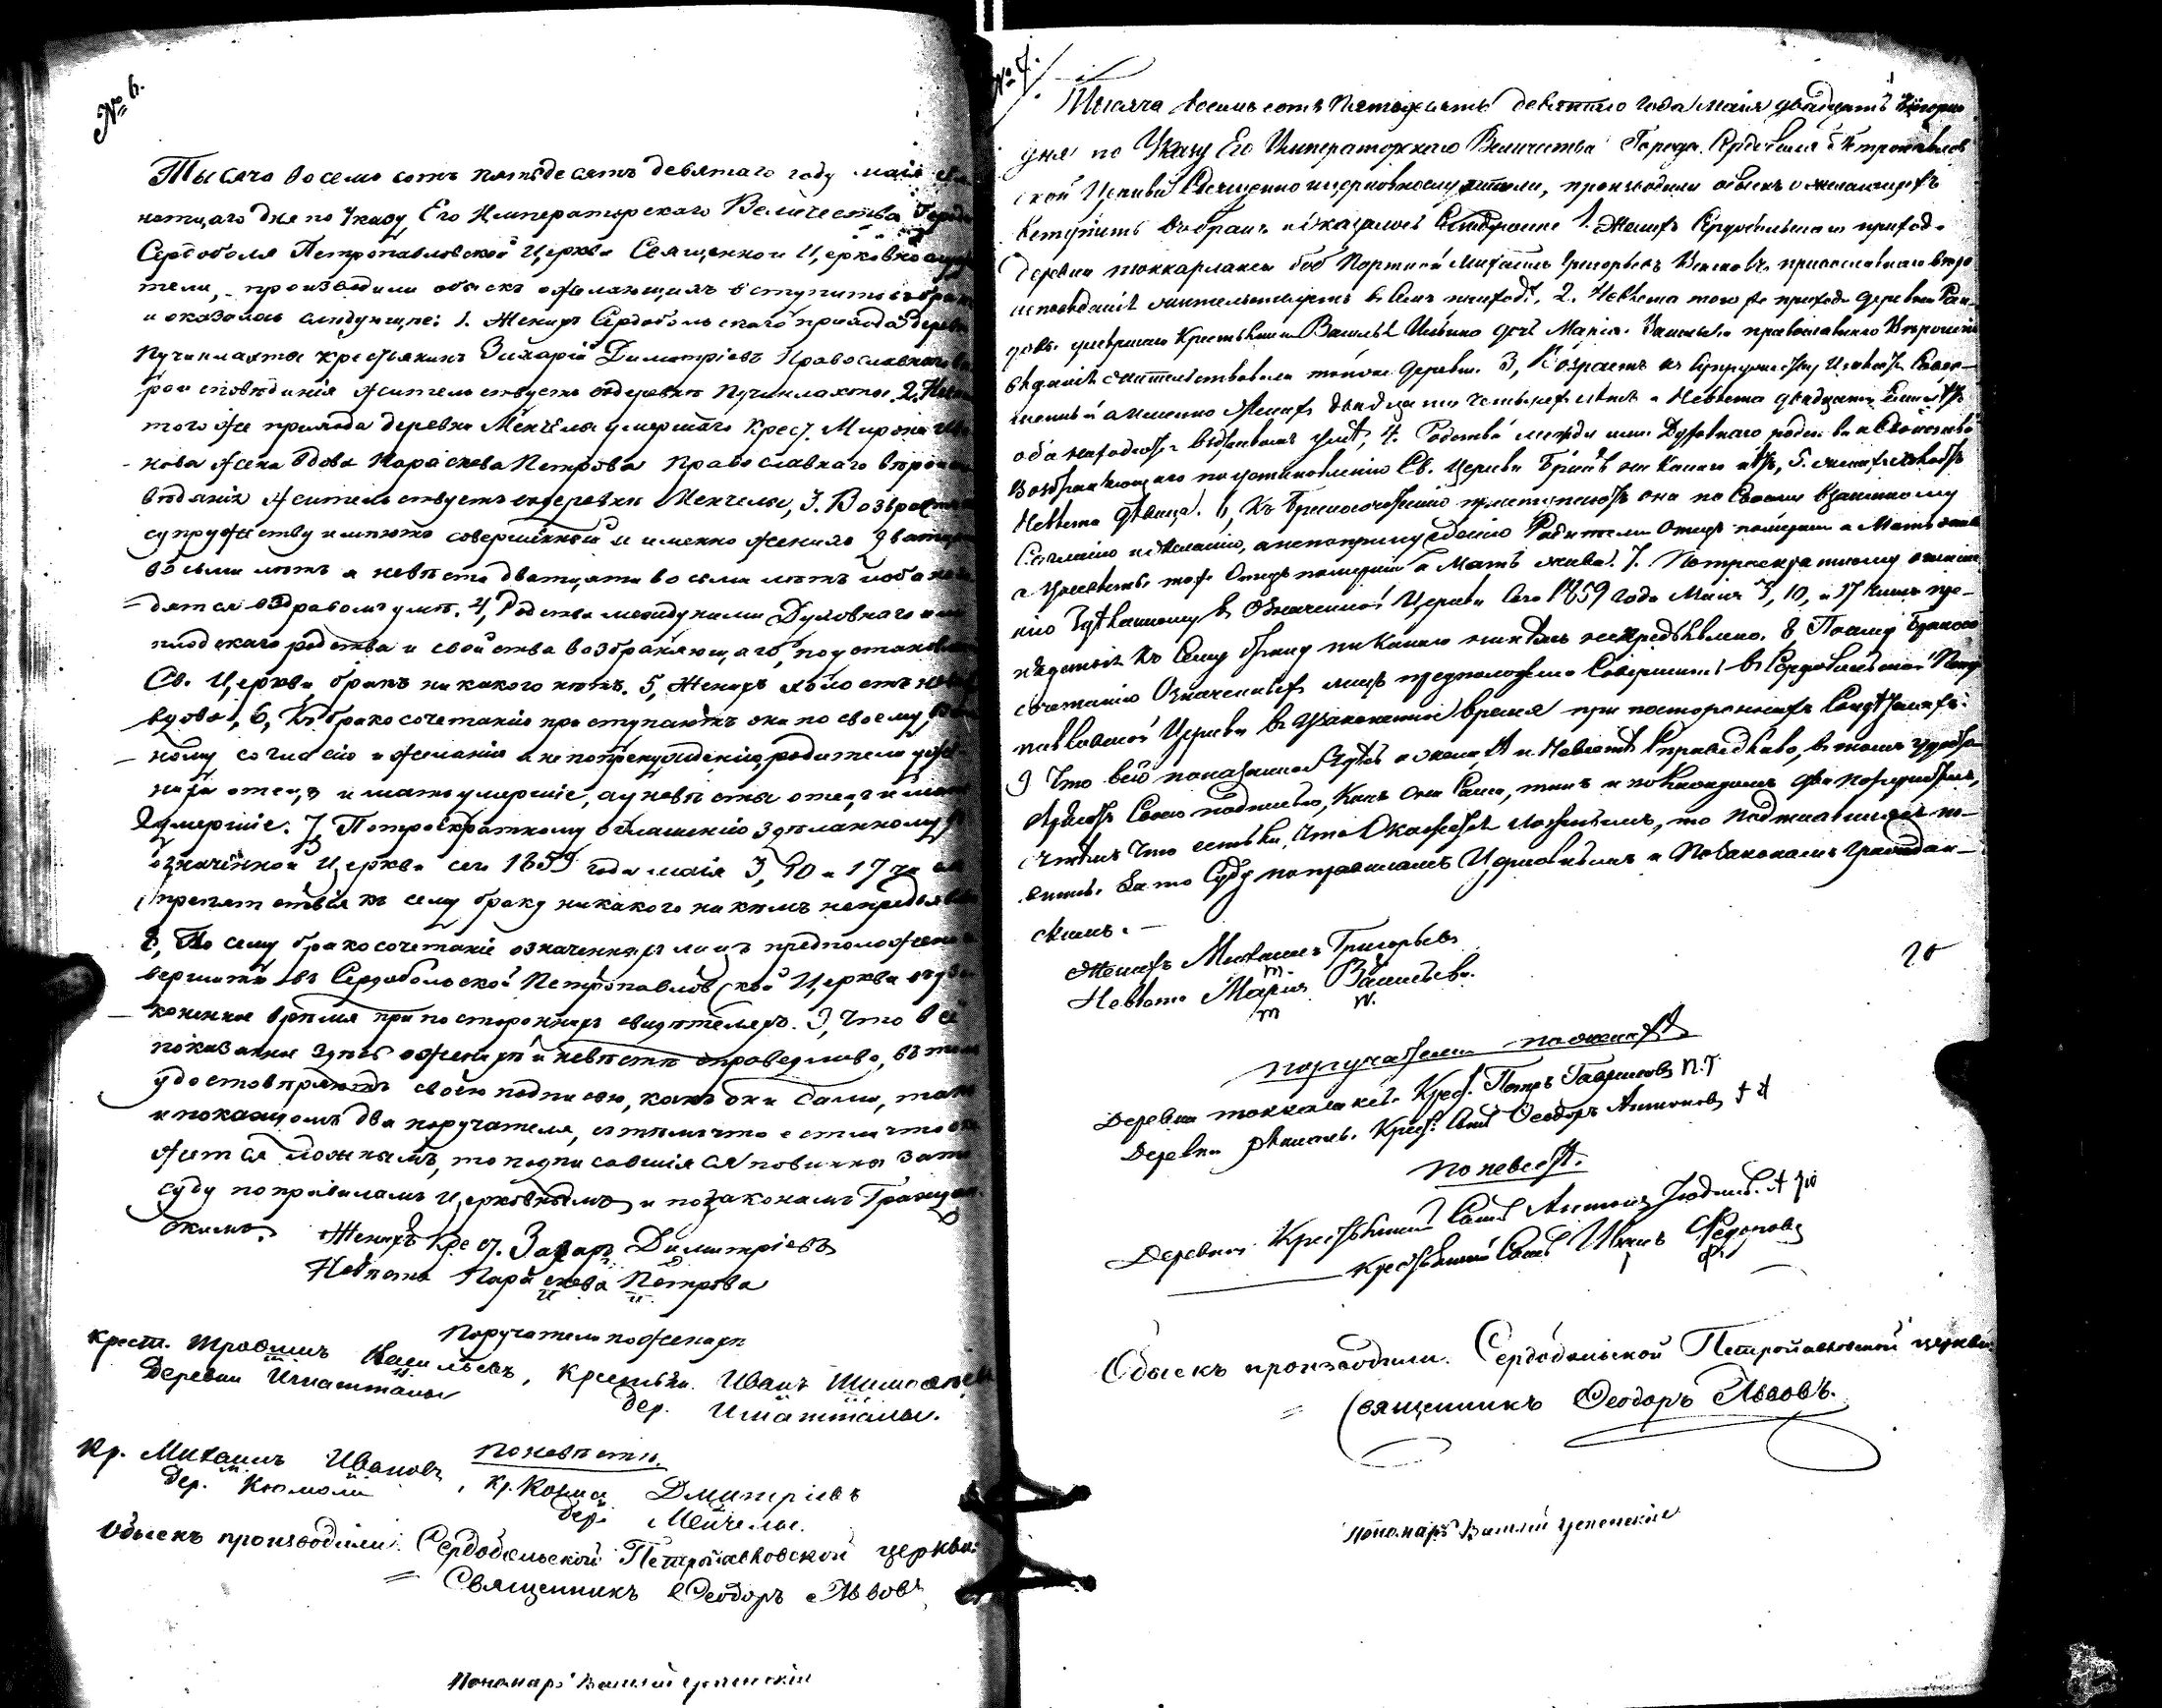 № 6.
Тысяча восемь сотъ пятьдесятъ девятаго году маія
натцаго дня по Указу Его Императорскаго Величества Города
Сердоболя Петропавловской Церкви Священно и Церковно
тели, производили обыскъ о желающихъ вступить въ бракъ
и оказалось слѣдующее: 1. Женихъ Сердобольскаго прихода деревни
Пучинлахты крестьянинъ Захарій Димитріевъ Православнаго
роисповѣданія жительствуетъ въ деревни Пучинлахты, 2. Невѣста
того же прихода деревни Менчелы умершаго Крест. Мирона
нова жена вдова Параскева Петрова Православнаго вѣроис
вѣданія жительствуетъ въ деревни Менчелы, 3. Возрастъ
супружеству имѣютъ совершенной и именно женихъ двадцати
восьми лѣтъ а невѣста дватцати восьми лѣтъ и оба нахо
дятся въ здравомъ умѣ. 4, Родства между ними Духовнаго или
плодскаго родства и свойства возбраняющаго, по установленію
Св. Церкви, бракъ никакого нѣтъ. 5, Женихъ холостъ невѣста
вдова, 6, Къ бракосочетанію приступаютъ они по своему
ному согласію и желанію а не по принужденію, родители у же
ниха отецъ и мать умершіе, а у невѣсты отецъ и мать
умершіе. 7, По троекратному оглашенію здѣланному
означенной Церкви сего 1859 года маія 3, 10 и 17 числ
препятствія къ сему браку никакого никѣмъ непредъявлено
8, По сему бракосочетаніе означенныхъ лицъ предположено
вершить въ Сердобольской Петропавловской Церкви въ уза
коненное время при постороннихъ свидѣтеляхъ. 9, Что всё
показанное здѣсь о женихѣ и невѣстѣ справедливо, въ томъ
удостовѣряютъ своею подписью, какъ они сами, такъ
и по каждомъ два поручателя, съ тѣмъ что естли что ока
жется ложнымъ, то подписавшіяся повинны за то
суду по правиламъ Церковнымъ и по законамъ Граждан
скимъ. Женихъ Крест. Захаръ Димитріевъ
Невѣста Параскева Петрова
Поручатели по женихѣ
Крест. Трофимъ Васильевъ, Крестьян. Иванъ
Деревни дер.
по невѣстѣ
Кр. Михаилъ Ивановъ, Кр. Козма Дмитріевъ
Дер. Дер. Менчелы.
Обыскъ производили: Сердобольской Петропавловской церкви:
= Священникъ Ѳеодоръ Львовъ
Пономарь Василій Успенскій
№ 7.
Тысяча восемь сотъ Пятьдесятъ девятаго года Маія двадцать втораго
дня по Указу Его Императорскаго Величества Города Сердоболя Петропавлов
ской Церкви Священно и церковнослужители, производили обыскъ о желающихъ
вступить въ бракъ и оказалось слѣдующее 1. Женихъ Сердобольскаго прихода
деревни боб. Портной Михаилъ Григорьевъ православнаго вѣро
исповѣданія жительствуетъ въ семъ приходѣ. 2. Невѣста того же прихода деревни
умершаго Крестьянина Василья дочь Марія Васильева православнаго Вѣроиспо
вѣданія жительствовала въ той же деревни. 3, Возрастъ къ супружеству имѣютъ Совер-
шенный а именно Женихъ двадцати четырехъ лѣтъ а Невѣста двадцати лѣтъ
оба находятся въ здравомъ умѣ, 4. Родства между ими Духовнаго родства и Свойства
возбраняющаго по установленію Св. Церкви Бракъ никакого нѣтъ, 5. женихъ холостъ
Невѣста Дѣвица. 6, Къ Бракосочетанію приступаютъ они по Своему взаимному
Согласію и желанію, а не по принужденію Родители Отецъ померши а Мать жива
а у невѣсты тоже Отецъ померши а Мать жива. 7. По троекратному оглаше
нію здѣланному въ Означенной Церкви Сего 1859 года Маія 3, 10, и 17 чиселъ пре-
пядствія къ Сему браку никакого никѣмъ непредъявлено. 8 Посему бракосо
сочетаніе Означенныхъ лицъ предположено Совершить въ Сердобольской Петро
павловской Церкви въ Узаконенное время при постороннихъ Свидѣтеляхъ:
9 Что всё показанное Здѣсь о женихѣ и Невѣстѣ Справедливо, въ томъ удосто
вѣряютъ Своею подписью, Какъ Они Сами, такъ и по каждомъ два поручителя,
съ тѣмъ Что естьли, что Окажется ложнымъ, то подписавшіяся по-
винны за то Суду по правиламъ Церковнымъ и По Законамъ Граждан-
скимъ. —
20
Женихъ Михаилъ Григорьевъ
Невѣста Марія Васильева.
поручатели по женихѣ
Деревни Крест. Петръ Гавриловъ П. Г
Деревни Крест. Сынъ Ѳеодоръ Антоновъ
по невестѣ.
Деревни Крестьянинъ Сынъ Антонъ
Крестьянинъ Сынъ Иванъ Ѳедоровъ
Обыскъ производили. Сердобольской Петропавловской церкви.
= Священникъ Ѳеодоръ Львовъ.
Пономарь Василій Успенскій